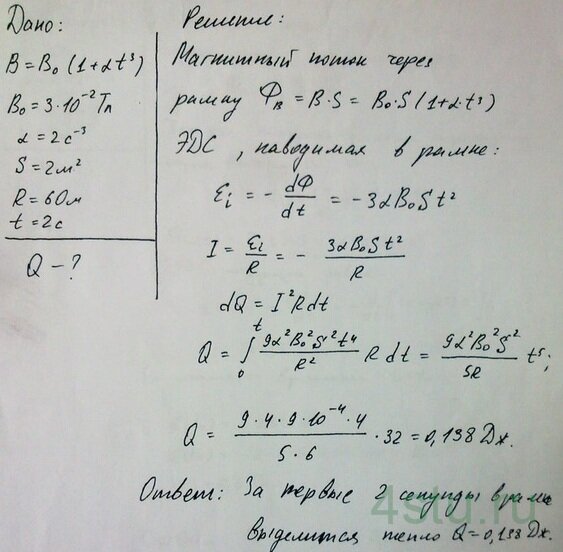 Дано:
B = B₀ (1+αt³)
B₀ = 3·10⁻² Тл
α = 2 с⁻³
S = 2м²
R = 6Ом
t = 2с
Q – ?
Решение:
Магнитный поток через
рамку Φ_B = B·S = B₀·S(1+α·t³)
ЭДС, наводимая в рамке:
ℰi = – dΦ/dt = –3αB₀St²
I = ℰi/R = – 3αB₀St²/R
dQ = I²Rdt
Q = ∫₀ᵗ 9α²B₀²S²t⁴/R² R dt = 9α²B₀²S²/5R t⁵;
Q = 9·4·9·10⁻⁴·4/5·6 · 32 = 0,138 Дж.
Ответ: За первые 2 секунды в рамке
выделится тепло Q = 0,138 Дж.
4stu.ru